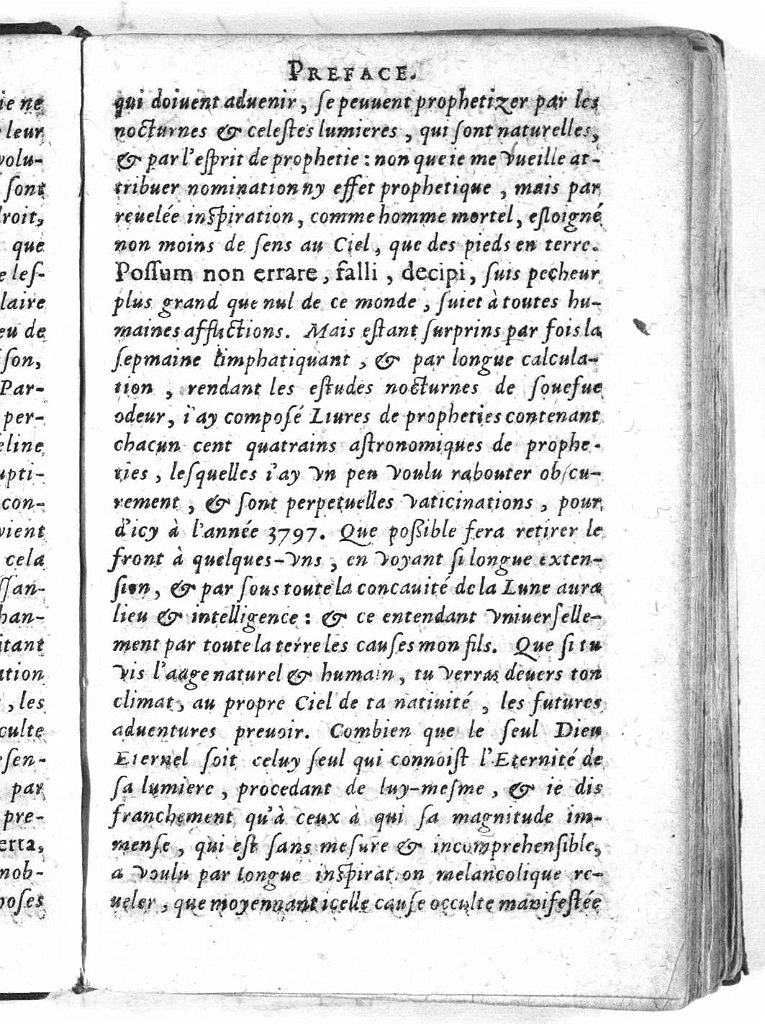 ie ne
leur
volu-
sont
droit,
que
e les-
laire
eu de
son,
Par-
per-
éline
upti-
con-
vient
cela
ssan-
han-
itant
ation
, les
culte
esen-
par
pre-
erta,
nob-
oses
PREFACE.
qui doiuent aduenir, se peuuent prophetizer par les
nocturnes & celestes lumieres, qui sont naturelles,
& par l'esprit de prophetie: non que ie me vueille at-
tribuer nomination ny effet prophetique, mais par
reuelée inspiration, comme homme mortel, esloigné
non moins de sens au Ciel, que des pieds en terre.
Possum non errare, falli, decipi, suis pecheur
plus grand que nul de ce monde, suiet à toutes hu-
maines afflictions. Mais estant surprins par fois la
sepmaine limphatiquant, & par longue calcula-
tion, rendant les estudes nocturnes de souefue
odeur, i'ay composé Liures de propheties contenant
chacun cent quatrains astronomiques de prophe-
ties, lesquelles i'ay vn peu voulu rabouter obscu-
rement, & sont perpetuelles vaticinations, pour
d'icy à l'année 3797. Que possible fera retirer le
front à quelques-vns, en voyant si longue exten-
sion, & par sous toute la concauité de la Lune aura
lieu & intelligence: & ce entendant vniuerselle-
ment par toute la terre les causes mon fils. Que si tu
vis l'aage naturel & humain, tu verras deuers ton
climat, au propre Ciel de ta natiuité, les futures
aduentures preuoir. Combien que le seul Dieu
Eternel soit celuy seul qui connoist l'Eternité de
sa lumiere, procedant de luy-mesme, & ie dis
franchement qu'à ceux à qui sa magnitude im-
mense, qui est sans mesure & incomprehensible,
a voulu par longue inspiration melancolique re-
ueler, que moyennant icelle cause occulte manifestée